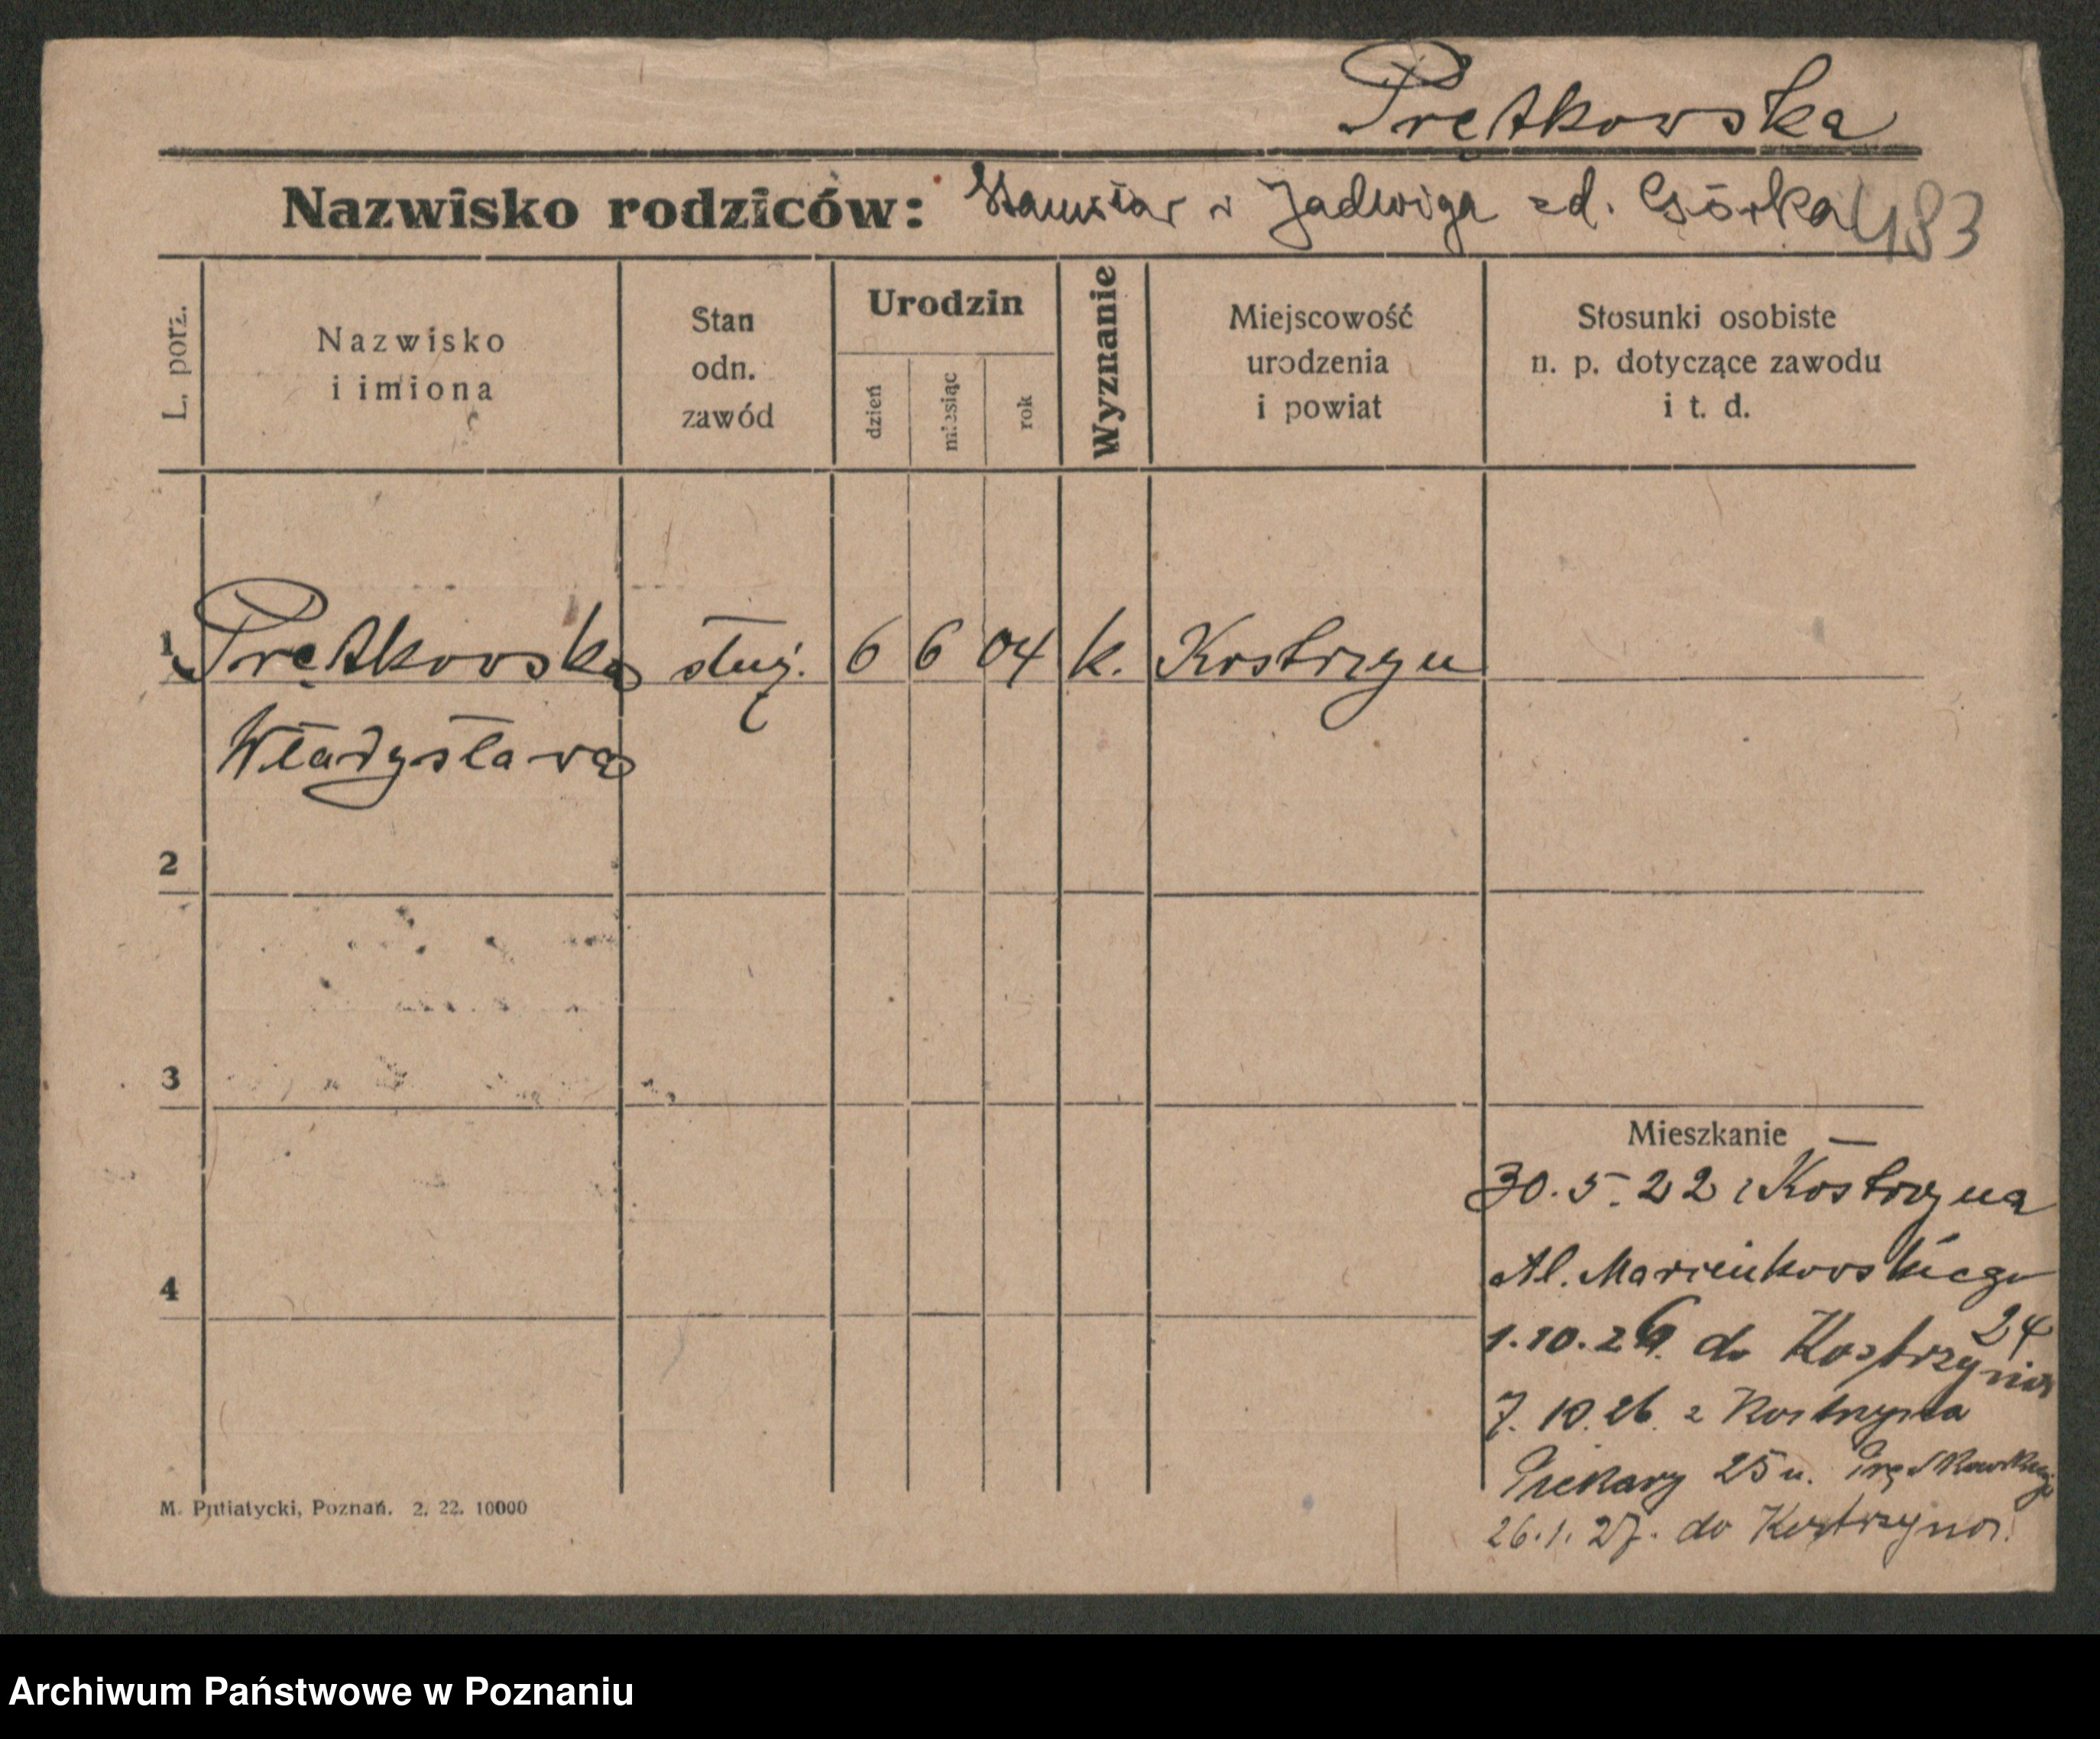 Prętkowska
Nazwisko rodziców: Stanisław i Jadwiga zd. Górka 483
L. porz.
Nazwisko
i imiona
Stan
odn.
zawód
Urodzin
dzień
miesiąc
rok
Wyznanie
Miejscowość
urodzenia
i powiat
Stosunki osobiste
n. p. dotyczące zawodu
i t. d.
1 Prętkowska służ. 6 6 04 k. Kostrzyn
Władysława
2
3
4
Mieszkanie —
30. 5. 22 z Kostrzyna
Al. Marcinkowskiego
24
1. 10. 26. do Kostrzynia
7. 10. 26. z Kostrzyna
Piekary 25 u.
26. 1. 27. do Kostrzyna.
M. Putiatycki, Poznań. 2. 22. 10000
Archiwum Państwowe w Poznaniu